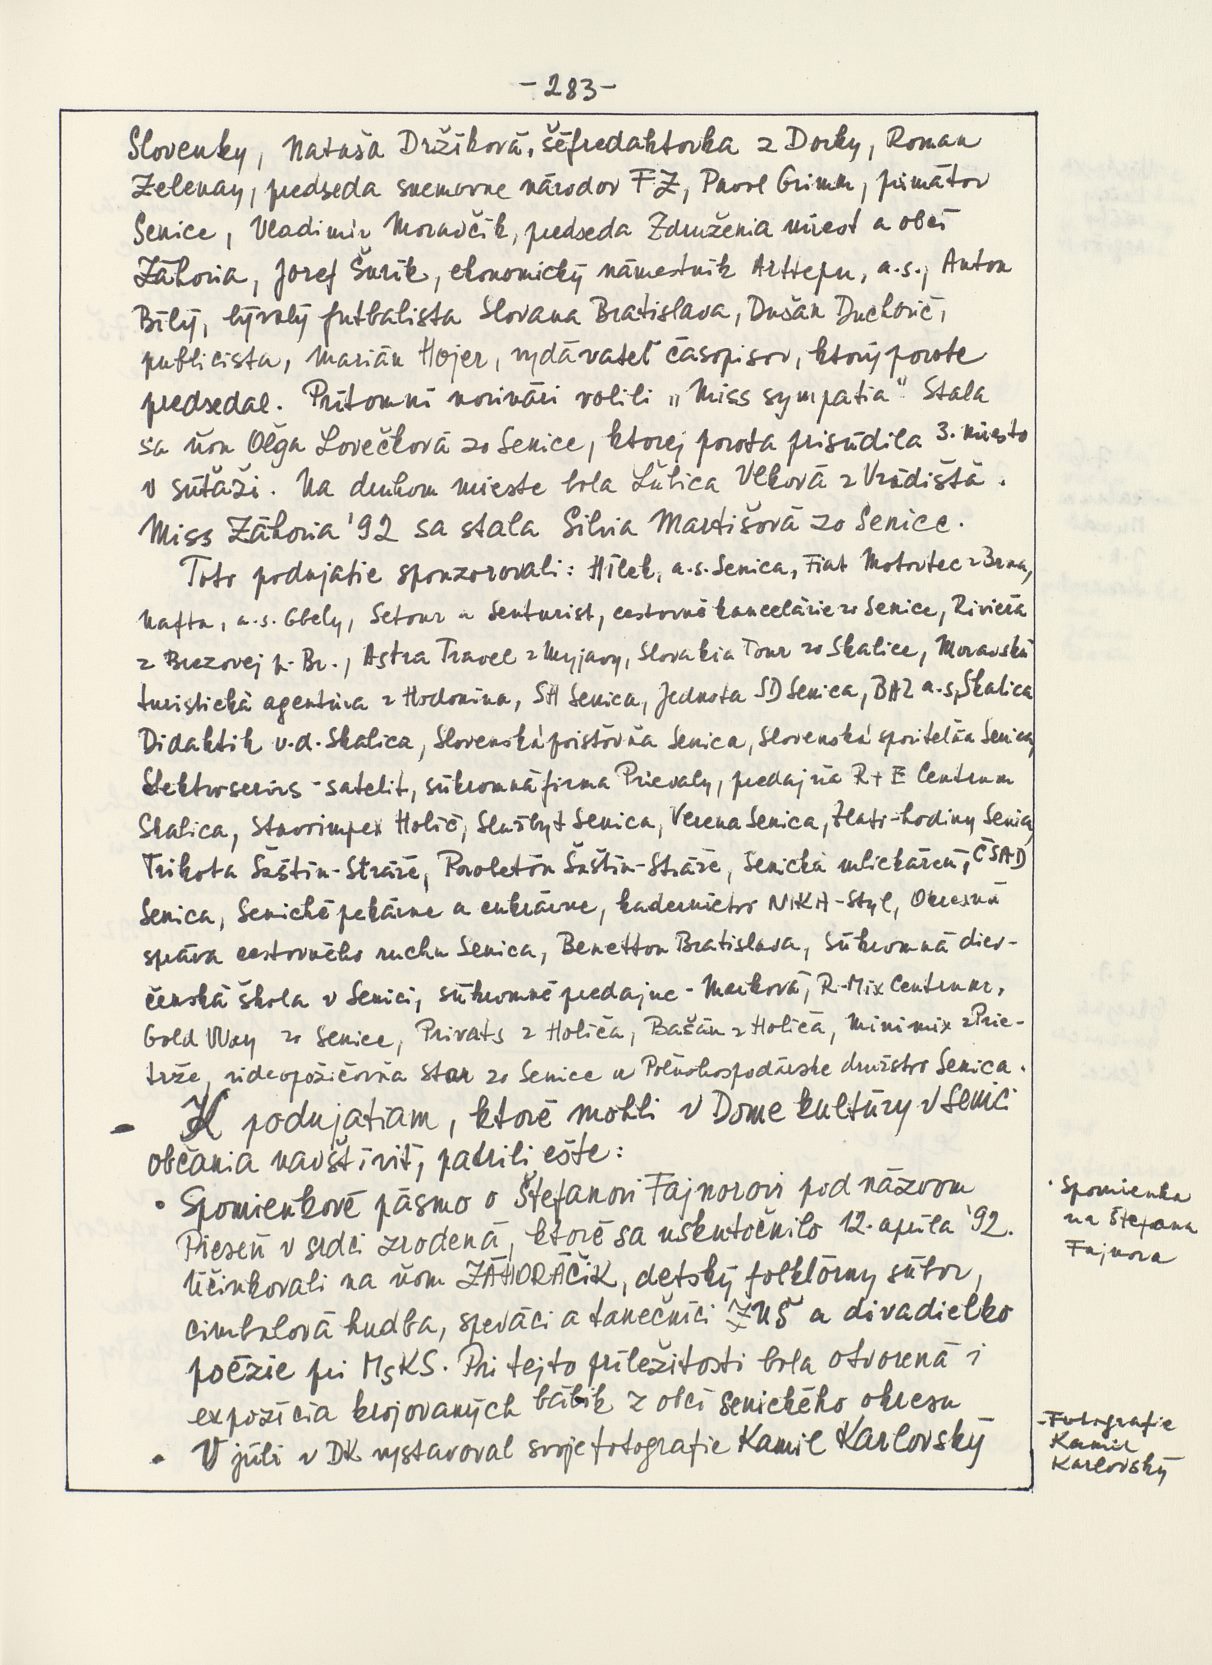 - 283 -
Slovenky, Nataša Držíková, šéfredaktorka z Dorky, Roman
Zelenay, predseda snemovne národov FZ, Pavol Grimm, primátor
Senice, Vladimír Moravčík, predseda Združenia miest a obcí
Záhoria, Jozef Šurík, ekonomický námestník Arttepu, a.s., Anton
Bílý, bývalý futbalista Slovana Bratislava, Dušan Duchovič,
publicista, Marián Hojer, vydávateľ časopisov, ktorý porote
predsedal. Prítomní novinári volili „Miss sympatia" Stala
sa ňou Oľga Lovečková zo Senice, ktorej porota prisúdila 3. miesto
v súťaži. Na druhom mieste bola Ľubica Vlková z Vrádišťa.
Miss Záhoria '92 sa stala Silvia Martišová zo Senice.
Toto podujatie sponzorovali: Hílek, a.s. Senica, Fiat Motortec z Brna,
Nafta, a.s. Gbely, Setour a Senturist, cestovné kancelárie zo Senice, Riviera
z Brezovej p. Br., Astra Travel z Myjavy, Slovakia Tour zo Skalice, Moravská
turistická agentúra z Hodonína, SH Senica, Jednota SD Senica, BAZ a.s, Skalica
Didaktik v.d. Skalica, Slovenská poisťovňa Senica, Slovenská sporiteľňa Senica,
Elektroservis - satelit, súkromná firma Prievaly, predajňa R + E Centrum
Skalica, Stavoimpex Holíč, Služby+ Senica, Verena Senica, Zlato-hodiny Senica,
Trikota Šaštín-Stráže, Poroletón Šaštín-Stráže, Senická mliekáreň, ČSAD
Senica, Senické pekárne a cukrárne, kaderníctvo NIKA-Styl, Okresná
správa cestovného ruchu Senica, Benetton Bratislava, Súkromná diev-
čenská škola v Senici, súkromné predajne - Macková, R-Mix Centrum,
Gold Way zo Senice, Privats z Holíča, Bašán z Holíča, Minimix z Prie-
trže, videopožičovňa Star zo Senice a Poľnohospodárske družstvo Senica.
- K podujatiam, ktoré mohli v Dome kultúry v Senici
občania navštíviť, patrili ešte:
• Spomienkové pásmo o Štefanovi Fajnorovi pod názvom
Pieseň v srdci zrodená, ktoré sa uskutočnilo 12. apríla '92.
Účinkovali na ňom ZÁHORÁČIK, detský folklórny súbor,
cimbalová hudba, speváci a tanečníci ZUŠ a divadielko
poézie pri MsKS. Pri tejto príležitosti bola otvorená i
expozícia krojovaných bábik z obcí senického okresu
• V júli v DK vystavoval svoje fotografie Kamil Karlovský
• Spomienka
na Štefana
Fajnora
- Fotografie
Kamil
Karlovský